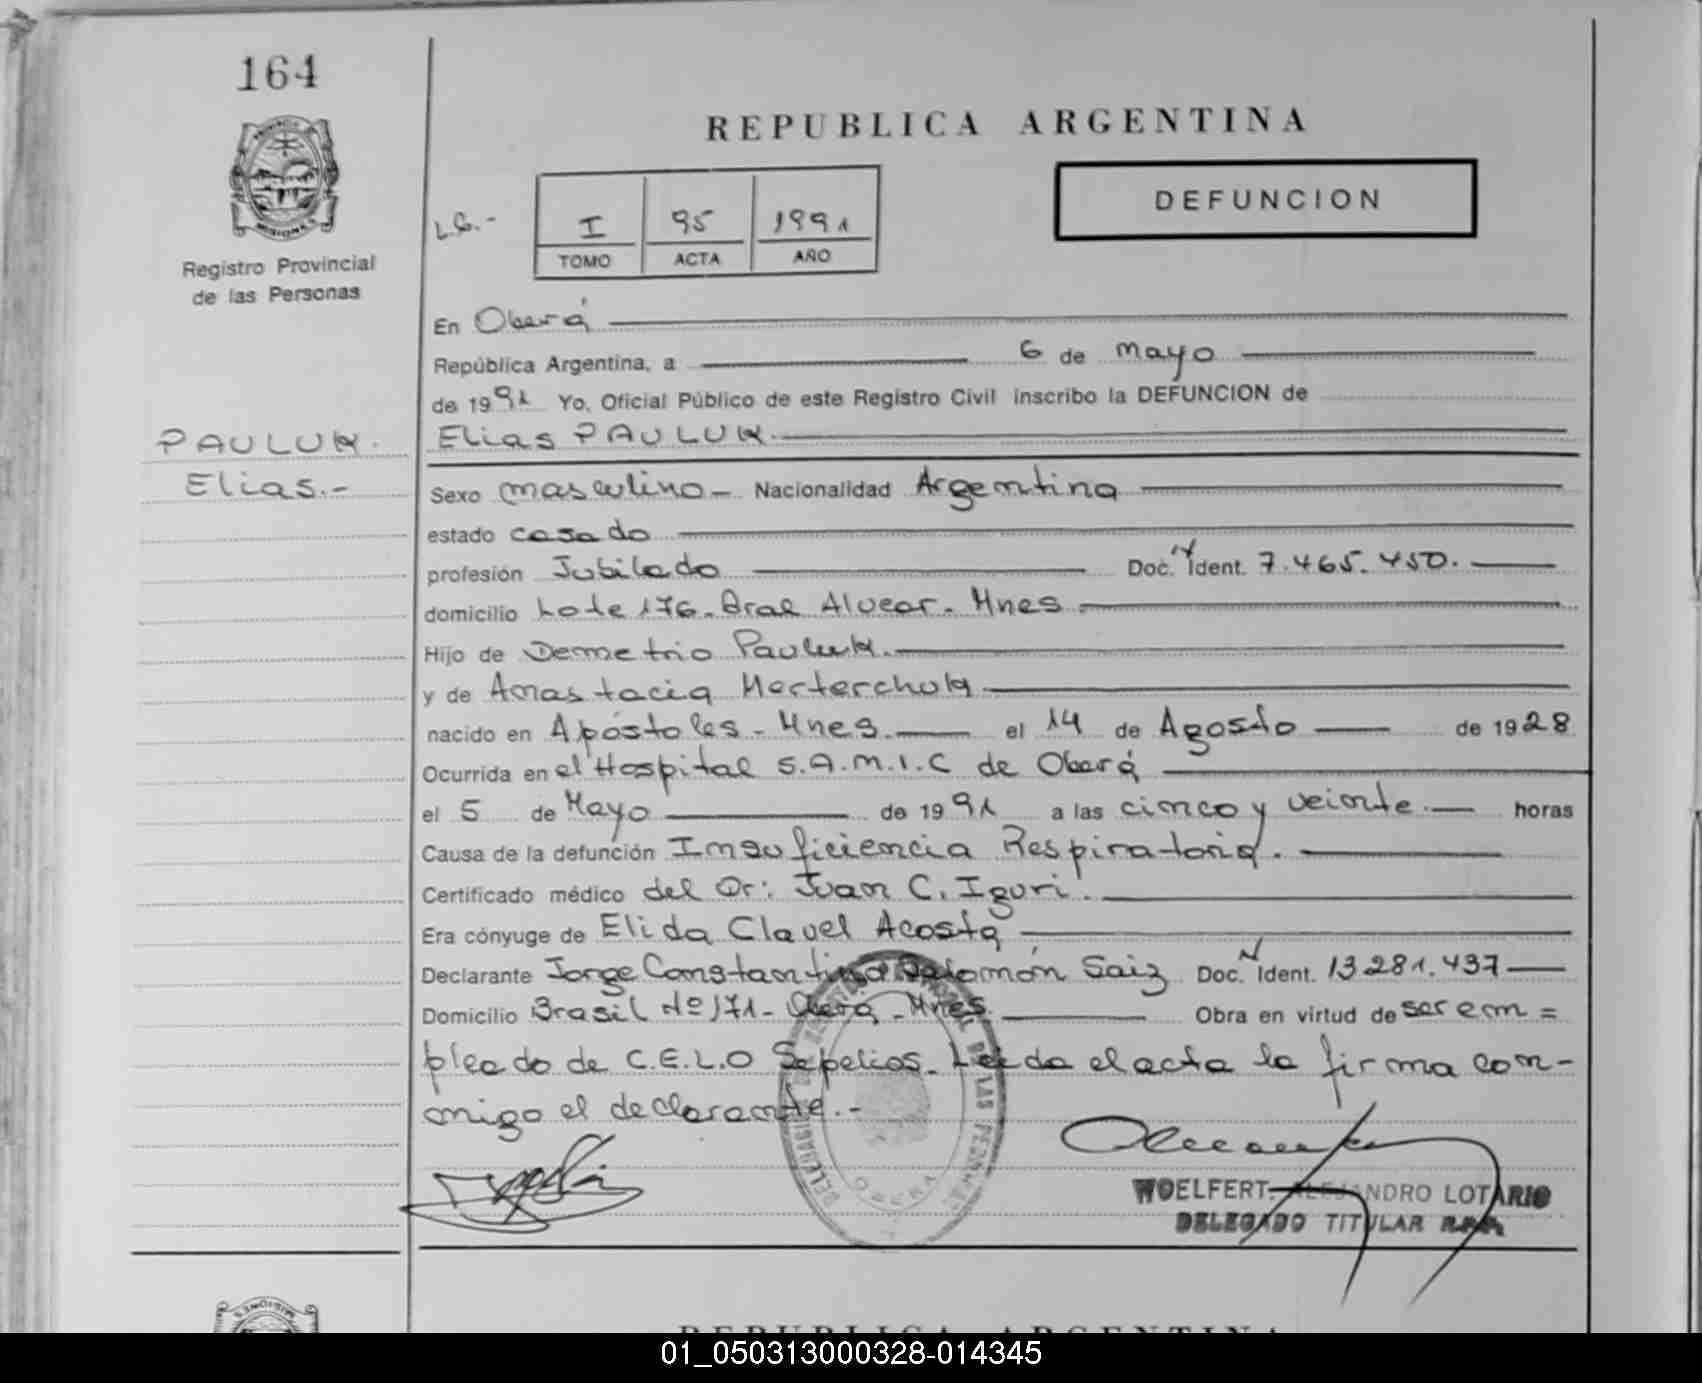 164
REPUBLICA ARGENTINA
PROVINCIA
MISIONES
Registro Provincial
de las Personas
DEFUNCION
L.G.-
I 95 1991
TOMO ACTA AÑO
En Oberá
República Argentina, a 6 de Mayo
de 1991 Yo, Oficial Público de este Registro Civil inscribo la DEFUNCION de
PAULUK.
Elias PAULUK.
Elias.-
Sexo masculino- Nacionalidad Argentina
estado casado
profesión Jubilado Doc. Ident. 7.465.450.
domicilio Lote 176- Gral Alvear- Mnes
Hijo de Demetrio Pauluk.
y de Anastacia Merterchuk
nacido en Apóstoles- Mnes. el 14 de Agosto de 1928
Ocurrida en el Hospital S.A.M.I.C de Oberá
el 5 de Mayo de 1991 a las cinco y veinte.- horas
Causa de la defunción Insuficiencia Respiratoria.
Certificado médico del Dr: Juan C. Iguri.
Era cónyuge de Elida Clavel Acosta
Declarante Jorge Constantino Salomón Saiz Doc. N Ident. 13281.437
Domicilio Brasil Nº 171- Oberá-Mnes. Obra en virtud de ser em=
pleado de C.E.L.O Sepelios- Leida el acta la firma con-
migo el declarante.-
DE LAS PERSONAS
OBERA
WOELFERT- ALEJANDRO LOTARIO
DELEGADO TITULAR R.P.P.
MISIONES
REPUBLICA ARGENTINA
01_050313000328-014345